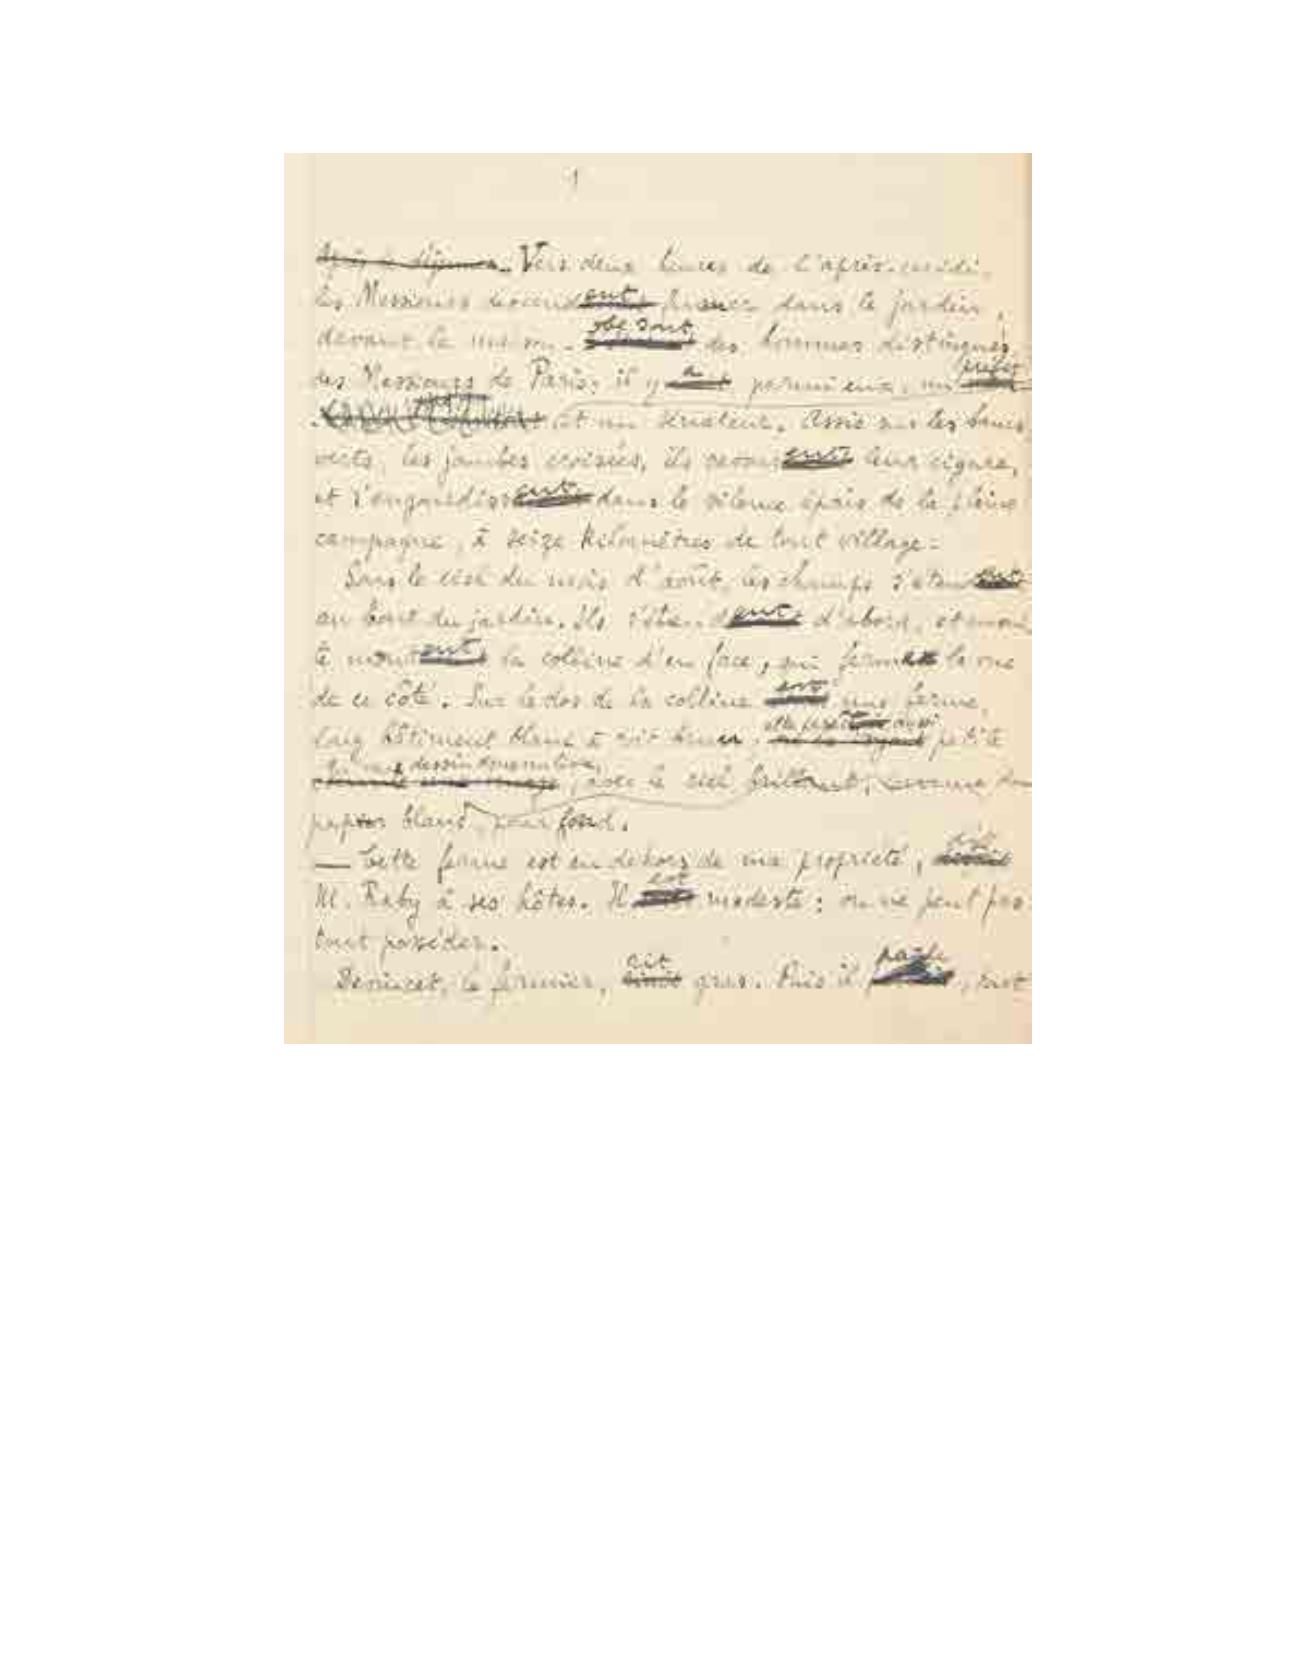 1
Après le déjeuner. Vers deux heures de l'après-midi,
les Messieurs descendent fumer dans le jardin,
devant la maison. Ce sont des hommes distingués,
des Messieurs de Paris; il y a parmi eux, un préfet
et un sénateur. Assis sur les bancs
verts, les jambes croisées, ils leur cigare,
et s'engourdissent dans le silence épais de la pleine
campagne, à seize kilomètres de tout village.
Sous le ciel du mois d'août, les champs s'étendent
au bout du jardin. Ils s'étendent d'abord, et
montent la colline d'en face, qui ferme la vue
de ce côté. Sur le dos de la colline est une ferme,
long bâtiment blanc à toit brun, petite
dessin avec le ciel brillant, comme du
papier blanc, pour fond.
— Cette ferme est en dehors de ma propriété, dit
M. Raby à ses hôtes. Il est modeste: on ne peut pas
tout posséder.
le fermier, est gras. Puis il parle, tout